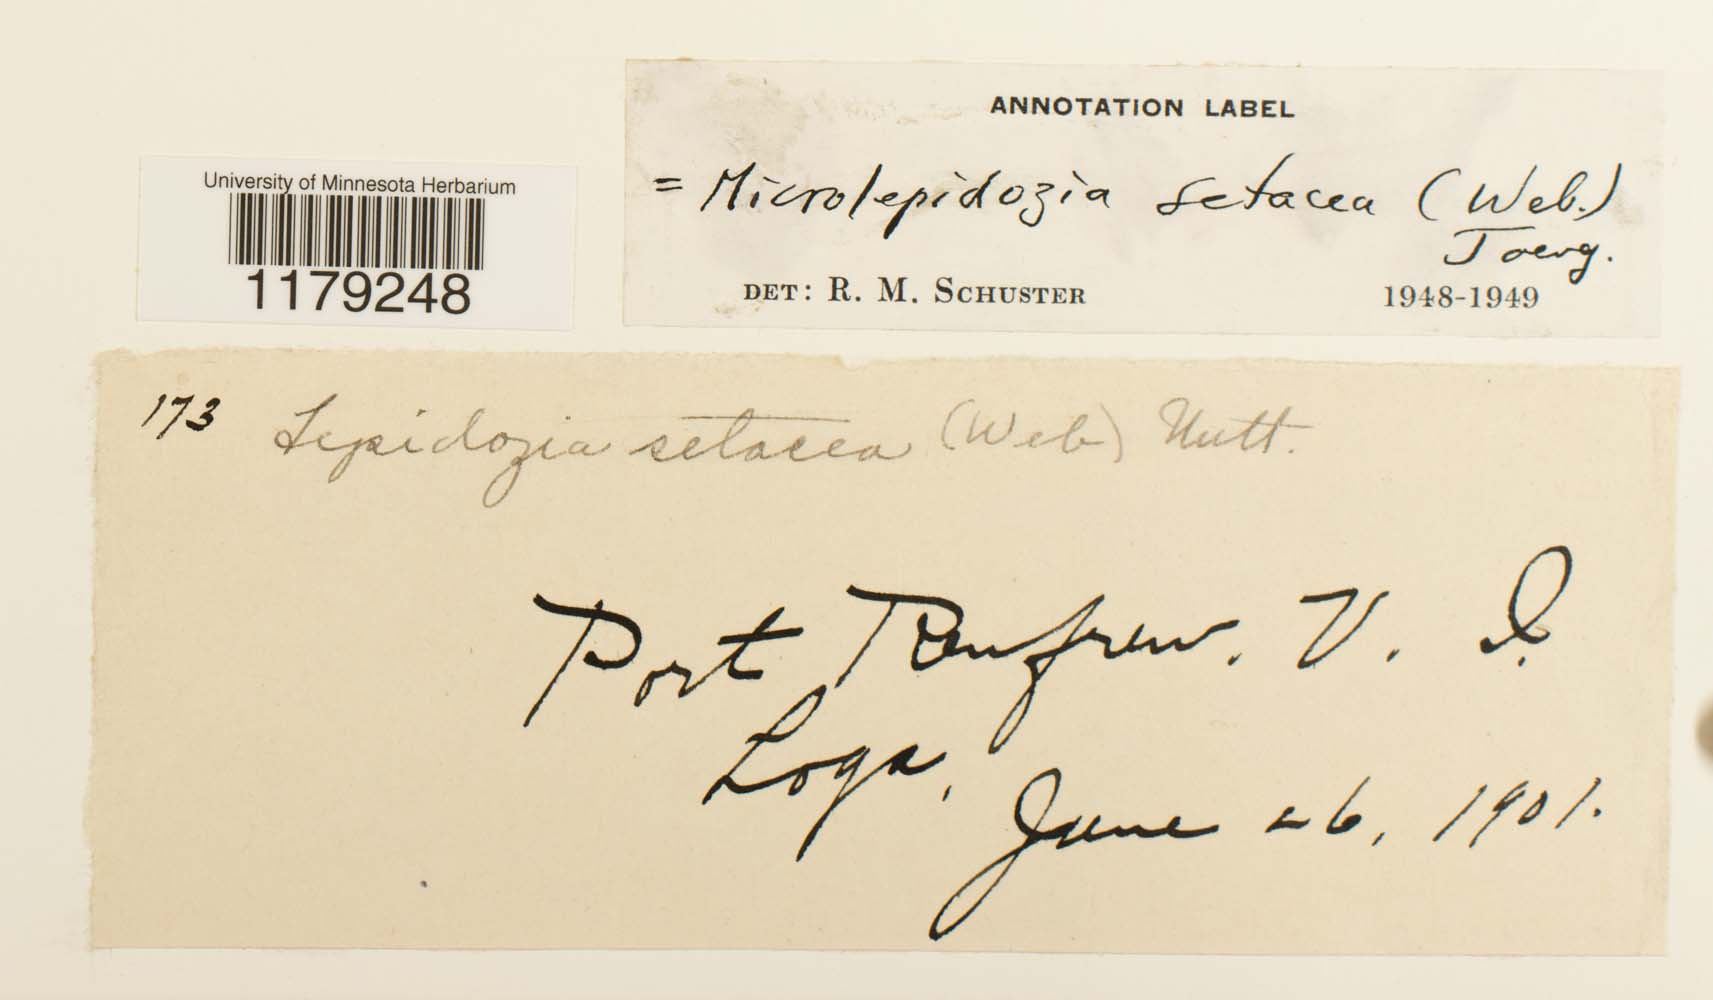 ANNOTATION LABEL
= Microlepidozia setacea (Web.)
Joerg.
DET: R. M. SCHUSTER 1948-1949
University of Minnesota Herbarium
1179248
173 Lepidozia setacea (Web) Mitt.
Port Renfrew. V. I.
Logs, June 26, 1901.